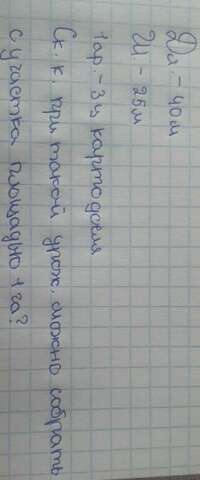 Дл. - 40м
Ш. - 25м
1 ар. - 3 ц картофеля
Ск. к. при такой урож. можно собрать
с участка площадью 1 га?